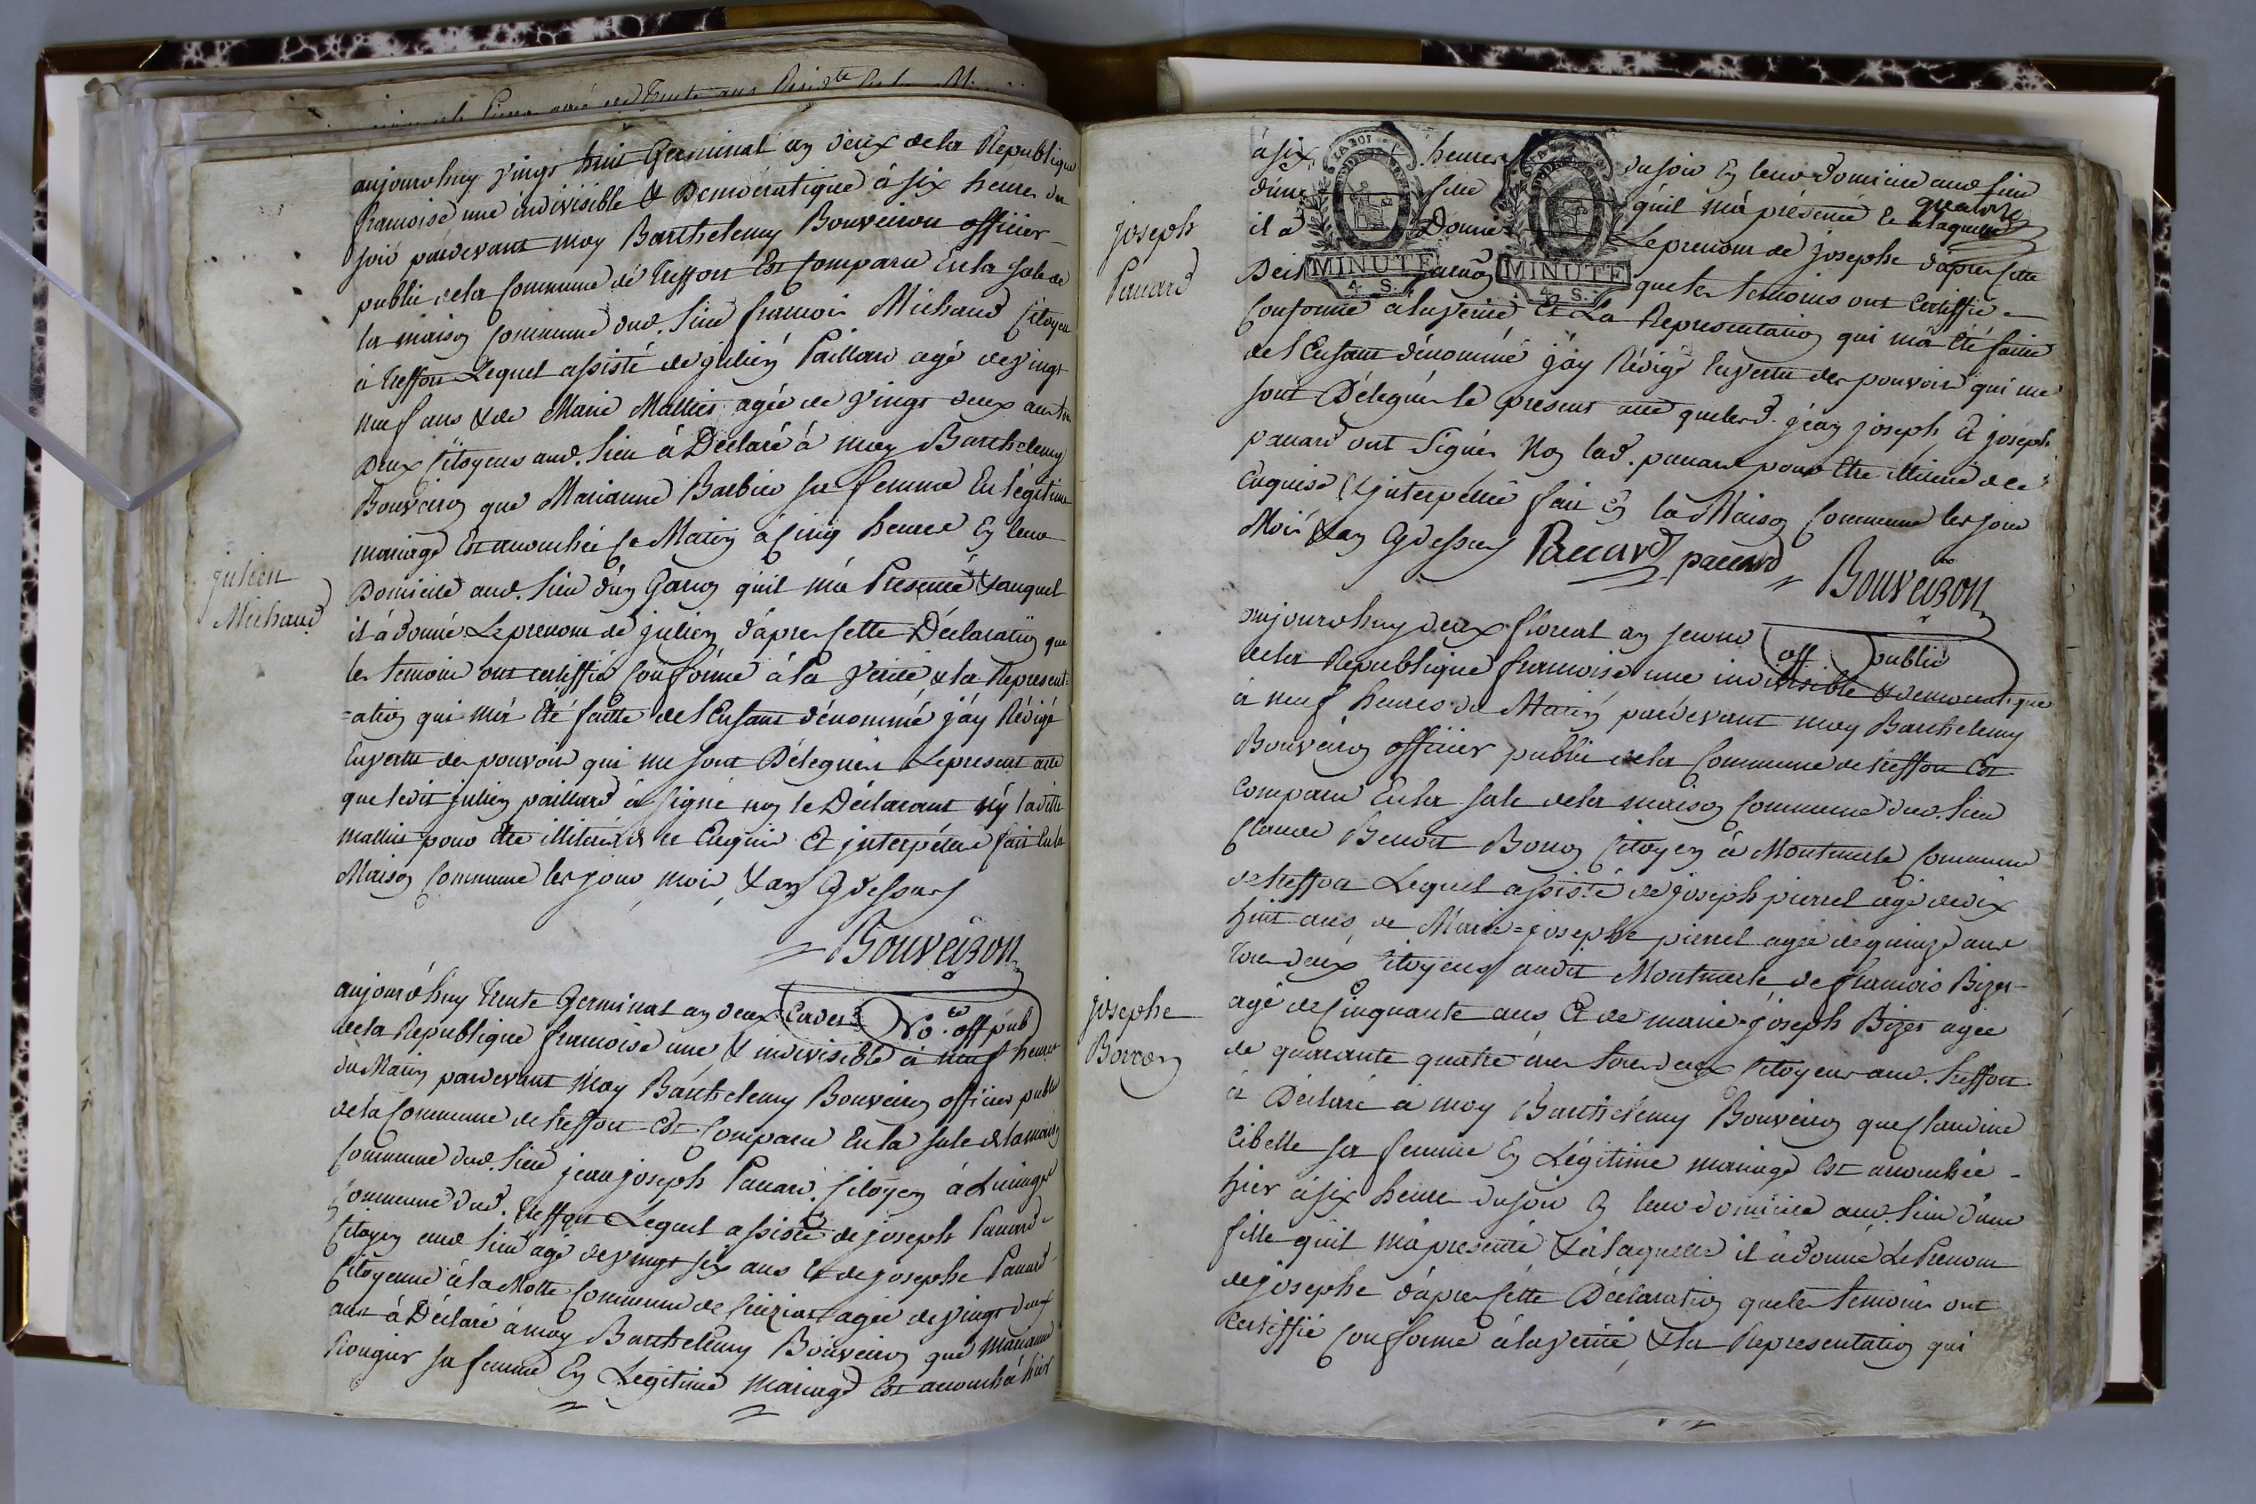 aujourdhuy vingt huit Germinal an deux de la Republique
francoise une indivisible & Democratique à six heures du
soir pardevant moy Barthelemy Bouveiron officier
public de la Commune de Treffort Est Comparu En la sale de
la maison Commune dud. lieu francois Michaud Citoyen
à Treffort Lequel assisté de julien Paillard agé de vingt
neuf ans & de Marie Mathieu agée de vingt deux ans tous
Deux Citoyens aud. lieu à Déclaré à moy Barthelemy
Bouveiron que Marianne Barbier sa femme En légitime
mariage Est accouchée Ce Matin à Cinq heures En leur
Domicile aud. lieu d'un Garçon qu'il m'a Presenté & auquel
il à donné Le prenom de julien d'après cette Déclaration que
les temoins ont certiffié Conforme à la verité & la Represent=
=ation qui m'a Eté faitte de l'Enfant dénommé j'ay Rédigé
En vertu des pouvoirs qui me sont Délegués Le present acte
que ledit julien paillard à signé non le Déclarant ny laditte
mathieu pour être illiterés de ce Enquis Et interpellés fait En la
Maison Commune les jour, mois, & an Cy dessus
Bouveiron
off pub
julien
Michaud
aujourd'huy trente Germinal an deux
de la Republique francoise une & indivisible à neuf heures
du Matin pardevant Moy Barthelemy Bouveiron officier public
de la Commune de treffort Est Comparu En la sale de la maison
Commune dud. lieu jean joseph Pauard Citoyen à
Commune dud. Treffort Lequel assisté de joseph Pauard
Citoyen aud. lieu agé de vingt six ans & de josephe Pauard
Citoyenne à la Motte Commune de Cuiziat agée de vingt deux
ans à Déclaré à moy Barthelemy Bouveiron que Marianne
Rougier sa femme En Legitime Mariage Est accouchée hier
à six heures du soir En leur domicile aud. lieu
d'une fille qu'il m'à présenté & à laquelle
il à Donné Le prenom de josephe d'après cette
Declaration que les temoins ont Certiffié
Conforme à la verité Et La Representation qui m'à Eté faitte
de l'Enfant dénommé j'ay Rédigé En vertu des pouvoirs qui me
sont Délegués le present acte que lesd. jean joseph, Et joseph
pauard ont Signés Non lad. pauard pour Etre illiterée de ce
Enquise & interpellée fait En la Maison Commune les jour
Mois & an Cy dessus Paccard paccard
Bouveiron
off public
MINUTE
4 S.
MINUTE
4 S.
joseph
Pauard
aujourdhuy deux floreal an second
de la Republique francoise une indivisible & democratique
à neuf heures du Matin pardevant moy Barthelemy
Bouveiron officier public de la Commune de treffort Est
Comparu En la sale de la maison Commune dud. lieu
Claude Benoit Borron Citoyen à Montmerle Commune
de treffort Lequel assisté de joseph pierrel agé de dix
huit ans de Marie=josephe pierrel agée de quinze ans
tous deux Citoyens audit Montmerle de francois Bizet
agé de Cinquante ans Et de marie=joseph Bizet agée
de quarante quatre ans tous deux Citoyens aud. treffort
à Déclaré à moy Barthelemy Bouveiron que Claudine
Cibelle sa femme En Légitime mariage Est accouchée
hier à six heures du soir En leur domicile aud. lieu d'une
fille qu'il m'à presenté & à laquelle il à donné Le Prenom
de josephe d'après cette Déclaration que les temoins ont
Certiffié Conforme à la verité, & la Representation qui
josephe
Borron